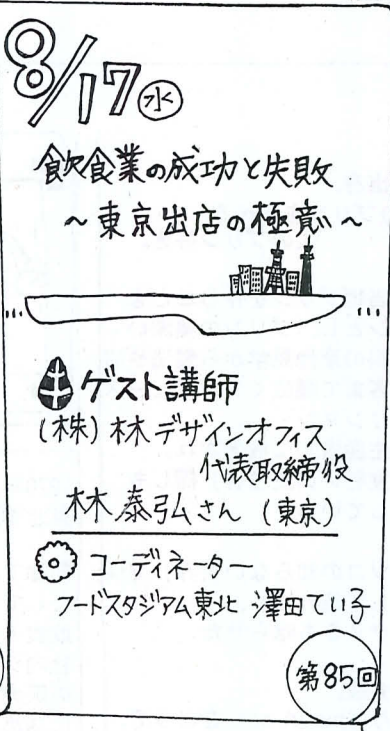 8/17㊌
飲食業の成功と失敗
～東京出店の極意～
ゲスト講師
(株)林デザインオフィス
代表取締役
林 泰弘さん（東京）
コーディネーター
フードスタジアム東北 澤田てい子
第85回